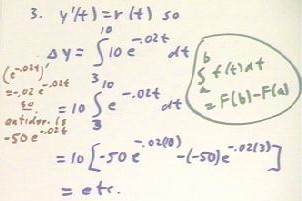 3. y'(t) = r(t) so
Δy = ∫₃¹⁰ 10 e^-.02t dt
= 10 ∫₃¹⁰ e^-.02t dt
= 10 [-50 e^-.02(10) -(-50)e^-.02(3)]
= etc.
(e^-.02t)'
= -.02 e^-.02t
so
antider. is
-50 e^-.02t
∫ₐᵇ f(t) dt
= F(b) - F(a)